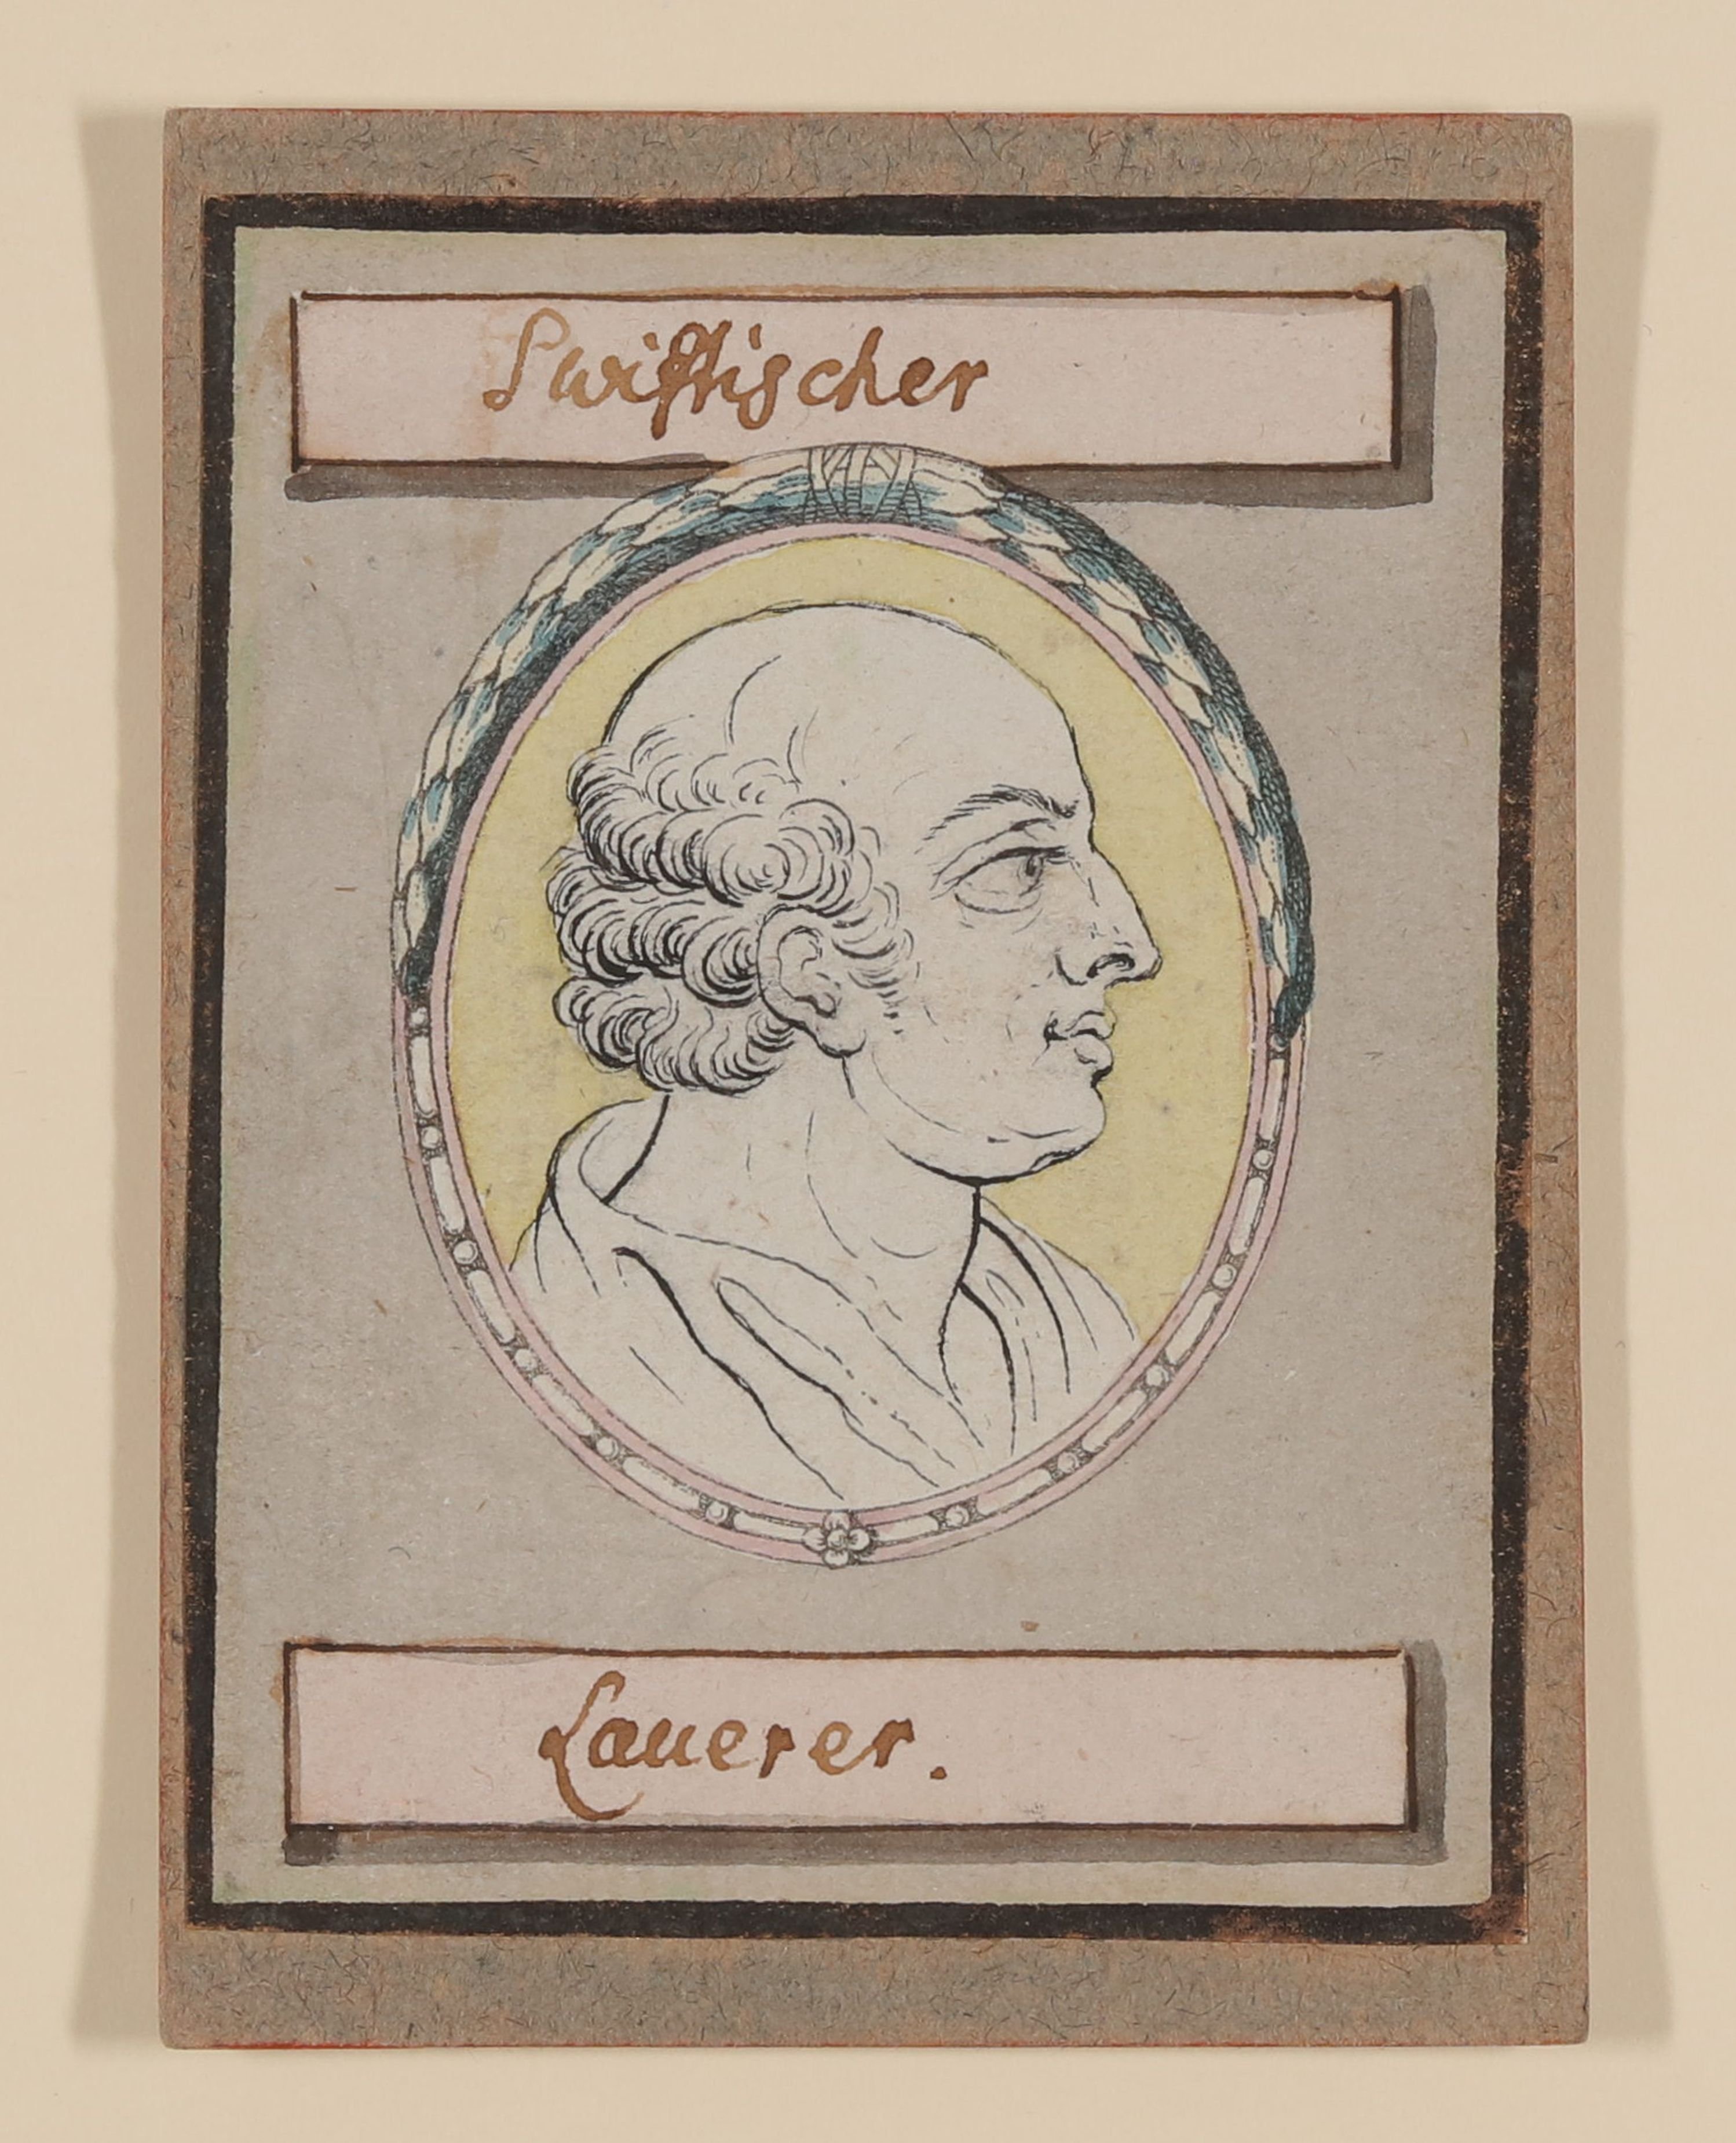 Swiftischer
Lauerer.